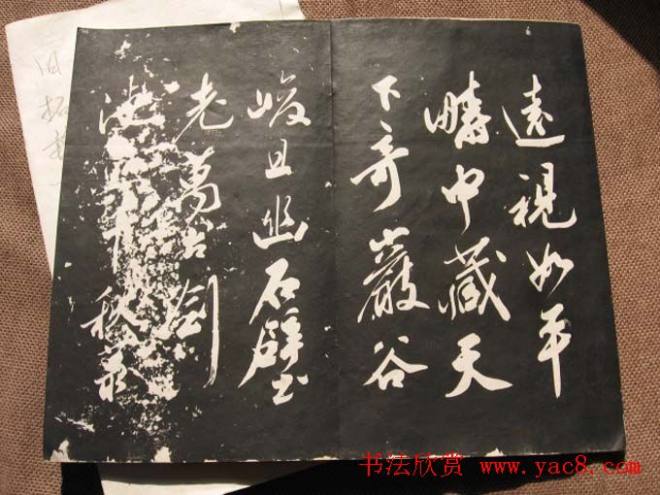 遠視如平
疇中藏天
下奇巖谷
峻且幽石壁
老萬古劍
池千秋
旧拓
书法欣赏 www.yac8.com